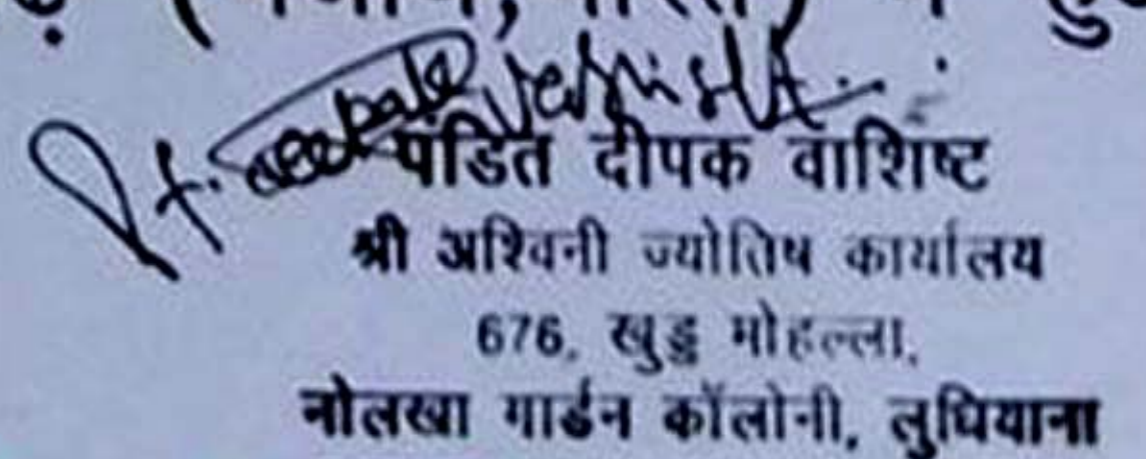 Pt. Deepak Vashisht
पंडित दीपक वाशिष्ट
श्री अश्विनी ज्योतिष कार्यालय
676, खुड्ड मोहल्ला,
नोलखा गार्डन कॉलोनी, लुधियाना